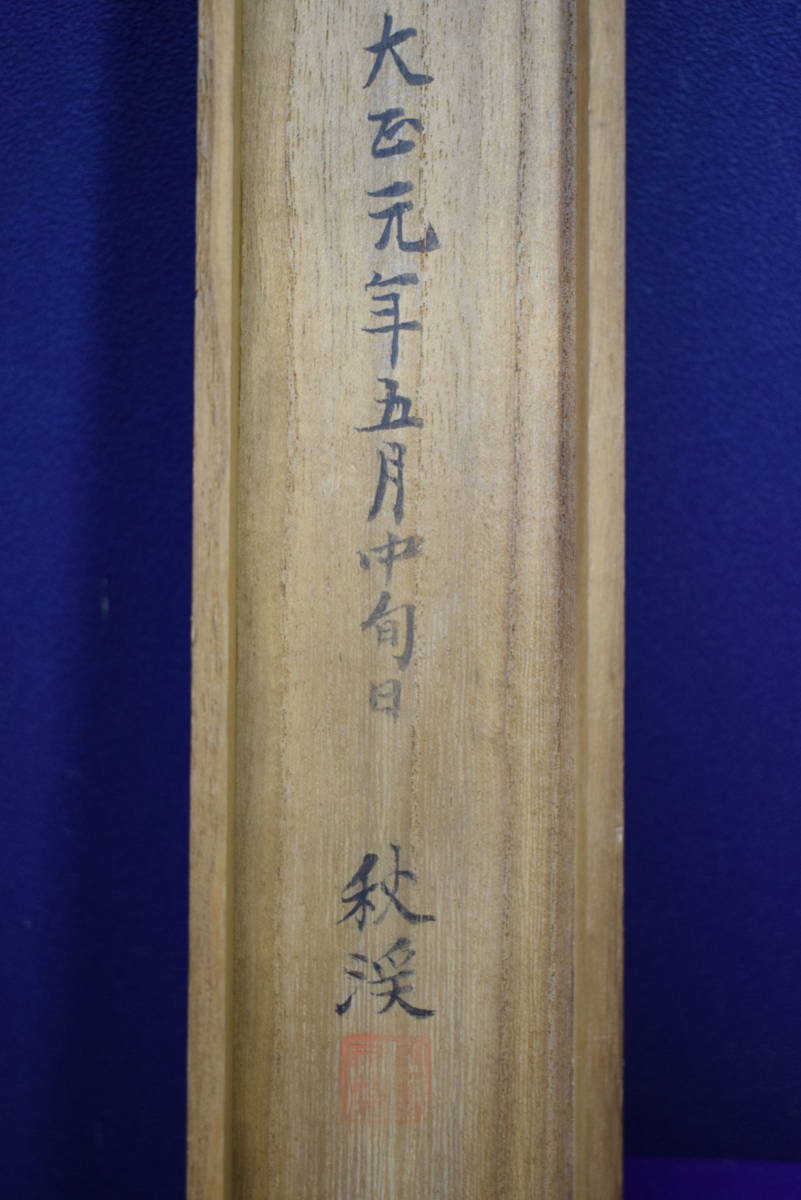 大正元年五月中旬日
秋渓